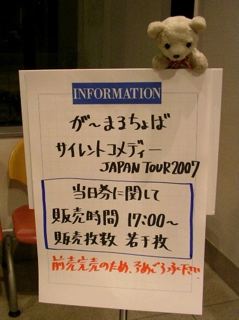 INFORMATION
が〜まるちょば
サイレントコメディー
JAPAN TOUR 2007
当日券に関して
販売時間 17:00〜
販売枚数 若干枚
前売完売のため、予めごろふ下さい